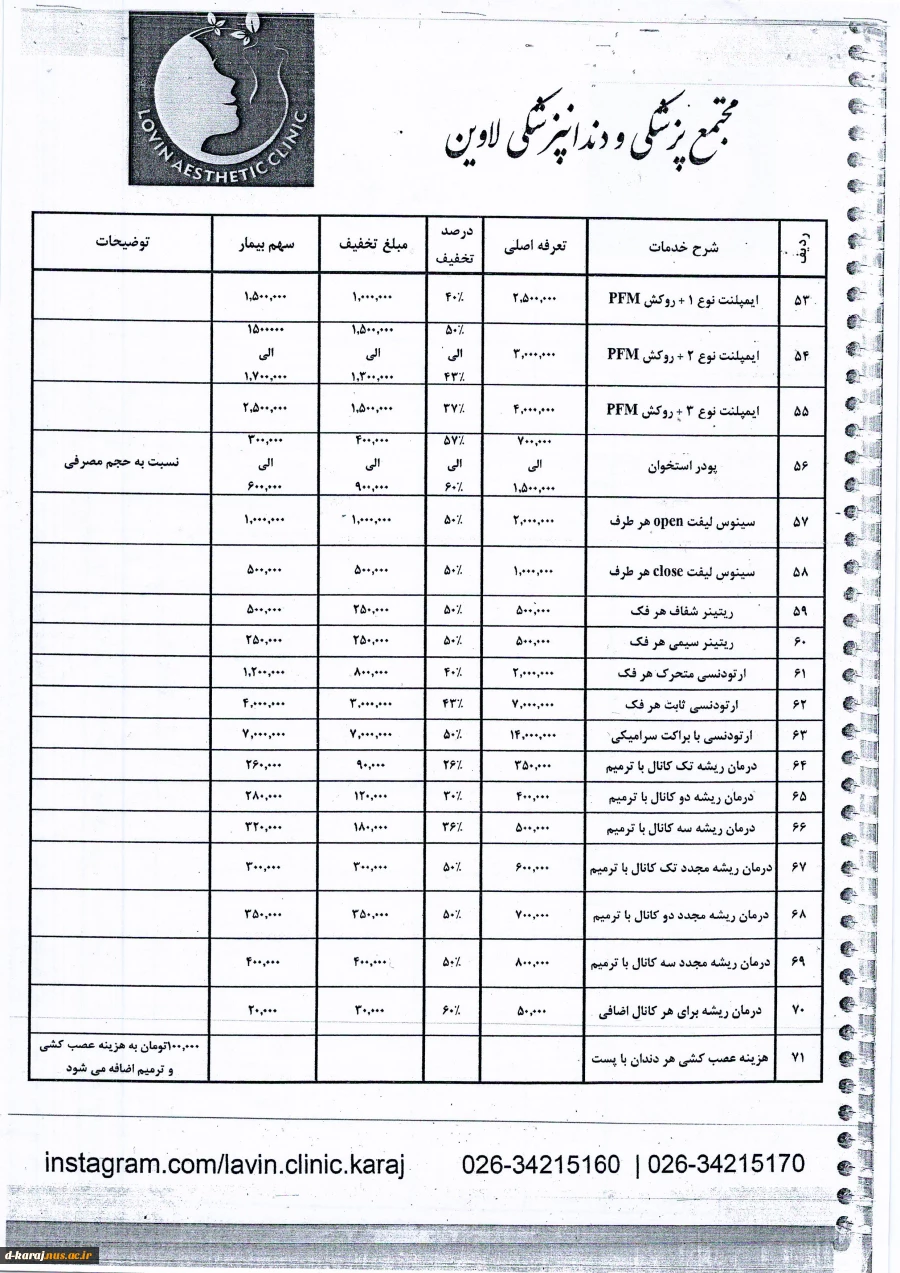 LOVIN AESTHETIC CLINIC
مجتمع پزشکی و دندانپزشکی لاوین
ردیف شرح خدمات تعرفه اصلی درصد تخفیف مبلغ تخفیف سهم بیمار توضیحات
۵۳ ایمپلنت نوع ۱ + روکش PFM ۲,۵۰۰,۰۰۰ ۴۰٪ ۱,۰۰۰,۰۰۰ ۱,۵۰۰,۰۰۰
۵۴ ایمپلنت نوع ۲ + روکش PFM ۳,۰۰۰,۰۰۰ ۵۰٪ الی ۴۳٪ ۱,۵۰۰,۰۰۰ الی ۱,۳۰۰,۰۰۰ ۱۵۰۰۰۰۰ الی ۱,۷۰۰,۰۰۰
۵۵ ایمپلنت نوع ۳ + روکش PFM ۴,۰۰۰,۰۰۰ ۳۷٪ ۱,۵۰۰,۰۰۰ ۲,۵۰۰,۰۰۰
۵۶ پودر استخوان ۷۰۰,۰۰۰ الی ۱,۵۰۰,۰۰۰ ۵۷٪ الی ۶۰٪ ۴۰۰,۰۰۰ الی ۹۰۰,۰۰۰ ۳۰۰,۰۰۰ الی ۶۰۰,۰۰۰ نسبت به حجم مصرفی
۵۷ سینوس لیفت open هر طرف ۲,۰۰۰,۰۰۰ ۵۰٪ ۱,۰۰۰,۰۰۰ ۱,۰۰۰,۰۰۰
۵۸ سینوس لیفت close هر طرف ۱,۰۰۰,۰۰۰ ۵۰٪ ۵۰۰,۰۰۰ ۵۰۰,۰۰۰
۵۹ ریتینر شفاف هر فک ۵۰۰,۰۰۰ ۵۰٪ ۲۵۰,۰۰۰ ۵۰۰,۰۰۰
۶۰ ریتینر سیمی هر فک ۵۰۰,۰۰۰ ۵۰٪ ۲۵۰,۰۰۰ ۲۵۰,۰۰۰
۶۱ ارتودنسی متحرک هر فک ۲,۰۰۰,۰۰۰ ۴۰٪ ۸۰۰,۰۰۰ ۱,۲۰۰,۰۰۰
۶۲ ارتودنسی ثابت هر فک ۷,۰۰۰,۰۰۰ ۴۳٪ ۳,۰۰۰,۰۰۰ ۴,۰۰۰,۰۰۰
۶۳ ارتودنسی با براکت سرامیکی ۱۴,۰۰۰,۰۰۰ ۵۰٪ ۷,۰۰۰,۰۰۰ ۷,۰۰۰,۰۰۰
۶۴ درمان ریشه تک کانال با ترمیم ۳۵۰,۰۰۰ ۲۶٪ ۹۰,۰۰۰ ۲۶۰,۰۰۰
۶۵ درمان ریشه دو کانال با ترمیم ۴۰۰,۰۰۰ ۳۰٪ ۱۲۰,۰۰۰ ۲۸۰,۰۰۰
۶۶ درمان ریشه سه کانال با ترمیم ۵۰۰,۰۰۰ ۳۶٪ ۱۸۰,۰۰۰ ۳۲۰,۰۰۰
۶۷ درمان ریشه مجدد تک کانال با ترمیم ۶۰۰,۰۰۰ ۵۰٪ ۳۰۰,۰۰۰ ۳۰۰,۰۰۰
۶۸ درمان ریشه مجدد دو کانال با ترمیم ۷۰۰,۰۰۰ ۵۰٪ ۳۵۰,۰۰۰ ۳۵۰,۰۰۰
۶۹ درمان ریشه مجدد سه کانال با ترمیم ۸۰۰,۰۰۰ ۵۰٪ ۴۰۰,۰۰۰ ۴۰۰,۰۰۰
۷۰ درمان ریشه برای هر کانال اضافی ۵۰,۰۰۰ ۶۰٪ ۳۰,۰۰۰ ۲۰,۰۰۰
۷۱ هزینه عصب کشی هر دندان با پست ۱۰۰,۰۰۰تومان به هزینه عصب کشی و ترمیم اضافه می شود
instagram.com/lavin.clinic.karaj 026-34215160 | 026-34215170
d-karaj.nus.ac.ir